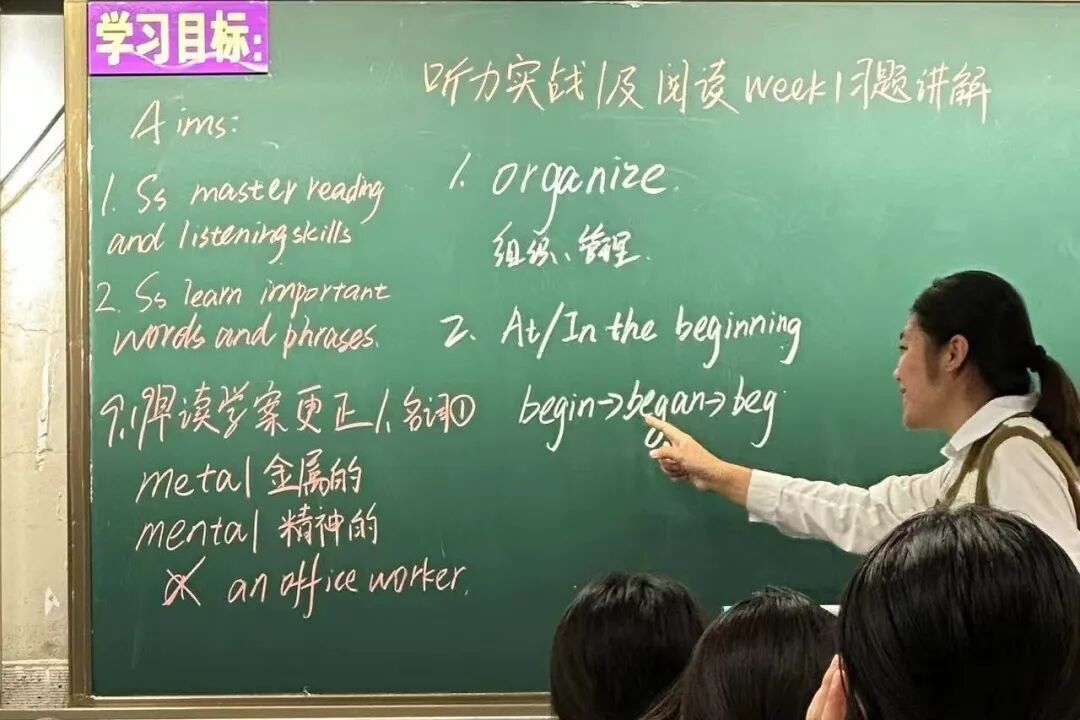 学习目标:
听力实战1及阅读week1习题讲解
Aims:
1. Ss master reading
and listening skills
2. Ss learn important
words and phrases.
9.1早读学案更正1.名词①
metal 金属的
mental 精神的
an office worker.
1. organize.
组织、管理.
2. At/In the beginning
begin→began→beg